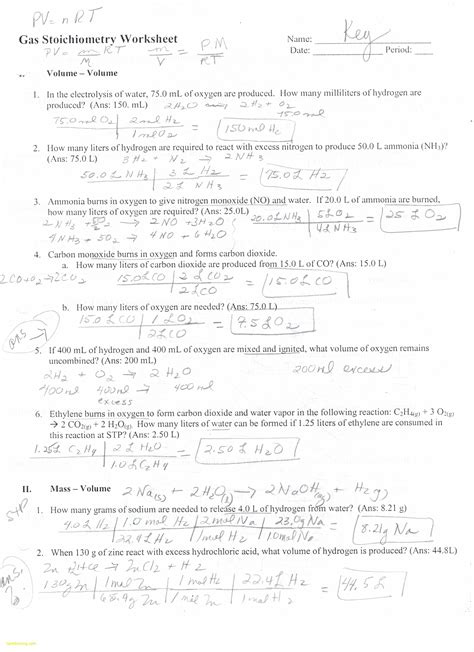 PV = nRT
Gas Stoichiometry Worksheet
Name: Key
PV = m/M RT m/V = PM/RT
Date: Period:
Volume – Volume
1. In the electrolysis of water, 75.0 mL of oxygen are produced. How many milliliters of hydrogen are
produced? (Ans: 150. mL) 2H2O 2H2 + O2
75.0 mL
75.0 mL O2 | 2 mol H2 / 1 mol O2 = 150 ml H2
2. How many liters of hydrogen are required to react with excess nitrogen to produce 50.0 L ammonia (NH3)?
(Ans: 75.0 L) 3H2 + N2 → 2NH3
50.0 L NH3 | 3 L H2 / 2 L NH3 = 75.0 L H2
3. Ammonia burns in oxygen to give nitrogen monoxide (NO) and water. If 20.0 L of ammonia are burned,
how many liters of oxygen are required? (Ans: 25.0L) 20.0 L NH3 | 5 L O2 / 4 L NH3 = 25 L O2
2NH3 + 5/2 O2 → 2NO + 3H2O
4NH3 + 5O2 → 4NO + 6H2O
4. Carbon monoxide burns in oxygen and forms carbon dioxide.
a. How many liters of carbon dioxide are produced from 15.0 L of CO? (Ans: 15.0 L)
2CO+O2→2CO2 15.0 L CO | 2 L CO2 / 2 L CO = 15.0 L CO
b. How many liters of oxygen are needed? (Ans: 75.0 L)
15.0 L CO | 1 L O2 / 2 L CO = 7.5 L O2
ans
5. If 400 mL of hydrogen and 400 mL of oxygen are mixed and ignited, what volume of oxygen remains
uncombined? (Ans: 200 mL) 200 ml excess
2H2 + O2 → 2H2O
400 ml 400 ml → 400 ml
excess
6. Ethylene burns in oxygen to form carbon dioxide and water vapor in the following reaction: C2H4(g) + 3 O2(g)
→ 2 CO2(g) + 2 H2O(g) How many liters of water can be formed if 1.25 liters of ethylene are consumed in
this reaction at STP? (Ans: 2.50 L)
1.25L C2H4 | 2 L H2O / 1.0 L C2H4 = 2.50 L H2O
II. Mass – Volume 2Na(s) + 2H2O(l) → 2NaOH(ag) + H2(g)
STP
1. How many grams of sodium are needed to release 4.0 L of hydrogen from water? (Ans: 8.21 g)
4.0 L H2 | 1.0 mol H2 / 22.4 L H2 | 2 mol Na / 1 mol H2 | 23.0 g Na / 1.0 mol Na = 8.21 g Na
2. When 130 g of zinc react with excess hydrochloric acid, what volume of hydrogen is produced? (Ans: 44.8L)
Zn 2HCl → ZnCl2 + H2
ans ?
130 g Zn | 1 mol Zn / 65.4 g Zn | 1 mol H2 / 1 mol Zn | 22.4 L H2 / 1 mol H2 = 44.5 L